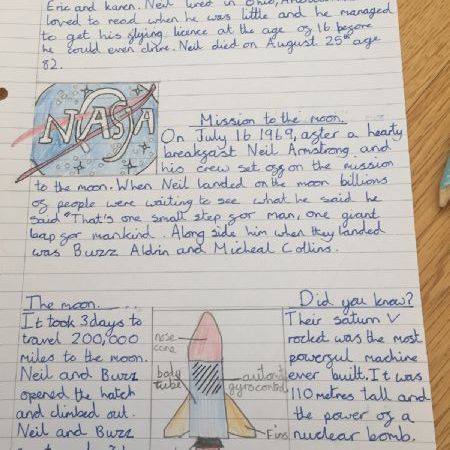 Eric and karen. Neil lived in Ohio,
loved to read when he was little and he managed
to get his flying licence at the age of 16 before
he could even drive. Neil died on August 25th age
82.
NASA
Mission to the moon.
On July 16 1969, after a hearty
breakfast Neil Armstrong and
his crew set off on the mission
to the moon. When Neil landed on the moon billions
of people were waiting to see what he said he
said "That's one small step for man, one giant
leap for mankind. Along side him when they landed
was Buzz Aldrin and Micheal Collins.
The moon.
It took 3 days to
travel 200,000
miles to the moon.
Neil and Buzz
opened the hatch
and climbed out.
Neil and Buzz
nose
cone
body
tube
gyrocontrol
Fins
Did you know?
Their saturn V
rocket was the most
powerful machine
ever built. It was
110 metres tall and
the power of a
nuclear bomb.